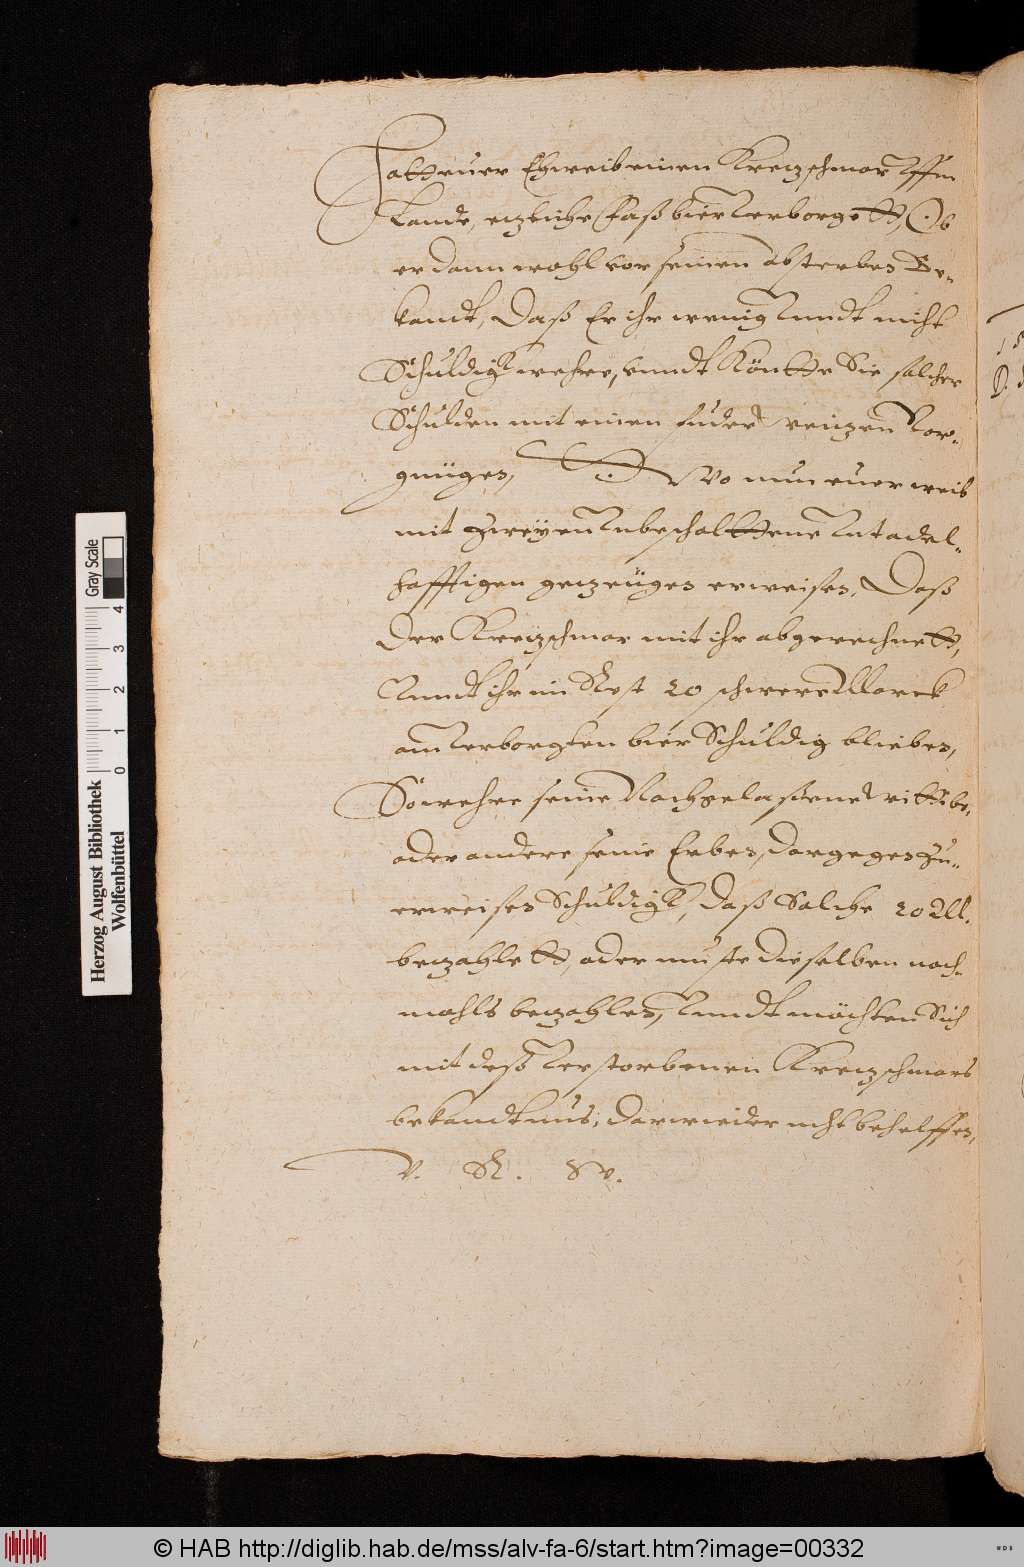 Hatt euer Eheweib einen Kretzschmar Vffm
Lande, etzliche Faß bier Verborgett, Ob
er dann wohl vor seinem absterben Be-
kandt, Daß Er ihr wenig Vundt nicht
Schuldigk wehre, vnndt Köntte Sie solcher
Schulden mit einen fuder weitzen Vor-
gnügen, Wo nun euer weib
mit zweyen Unbescholttene Untadel-
hafftigen getzeügen erweisen, Daß
der Kretzschmar mit ihr abgerechnett,
Vnndt ihr im Rest 20 schwere Marck
am Verborgten bier Schuldig blieben,
So wehre seine Nachgelaßene wittibe,
oder andere seine Erben, dargegen zu-
erweisen Schuldigk, daß Solche 20 M.
betzahlett, oder muste dieselben noch-
mahls betzahlen, Vnndt möchten Sich
mit deß Verstorbenen Kretzschmars
bekandtnus, darwieder nicht behelffen,
V. R. W.
Herzog August Bibliothek
Wolfenbüttel
Gray Scale
0 1 2 3 4
© HAB http://diglib.hab.de/mss/alv-fa-6/start.htm?image=00332